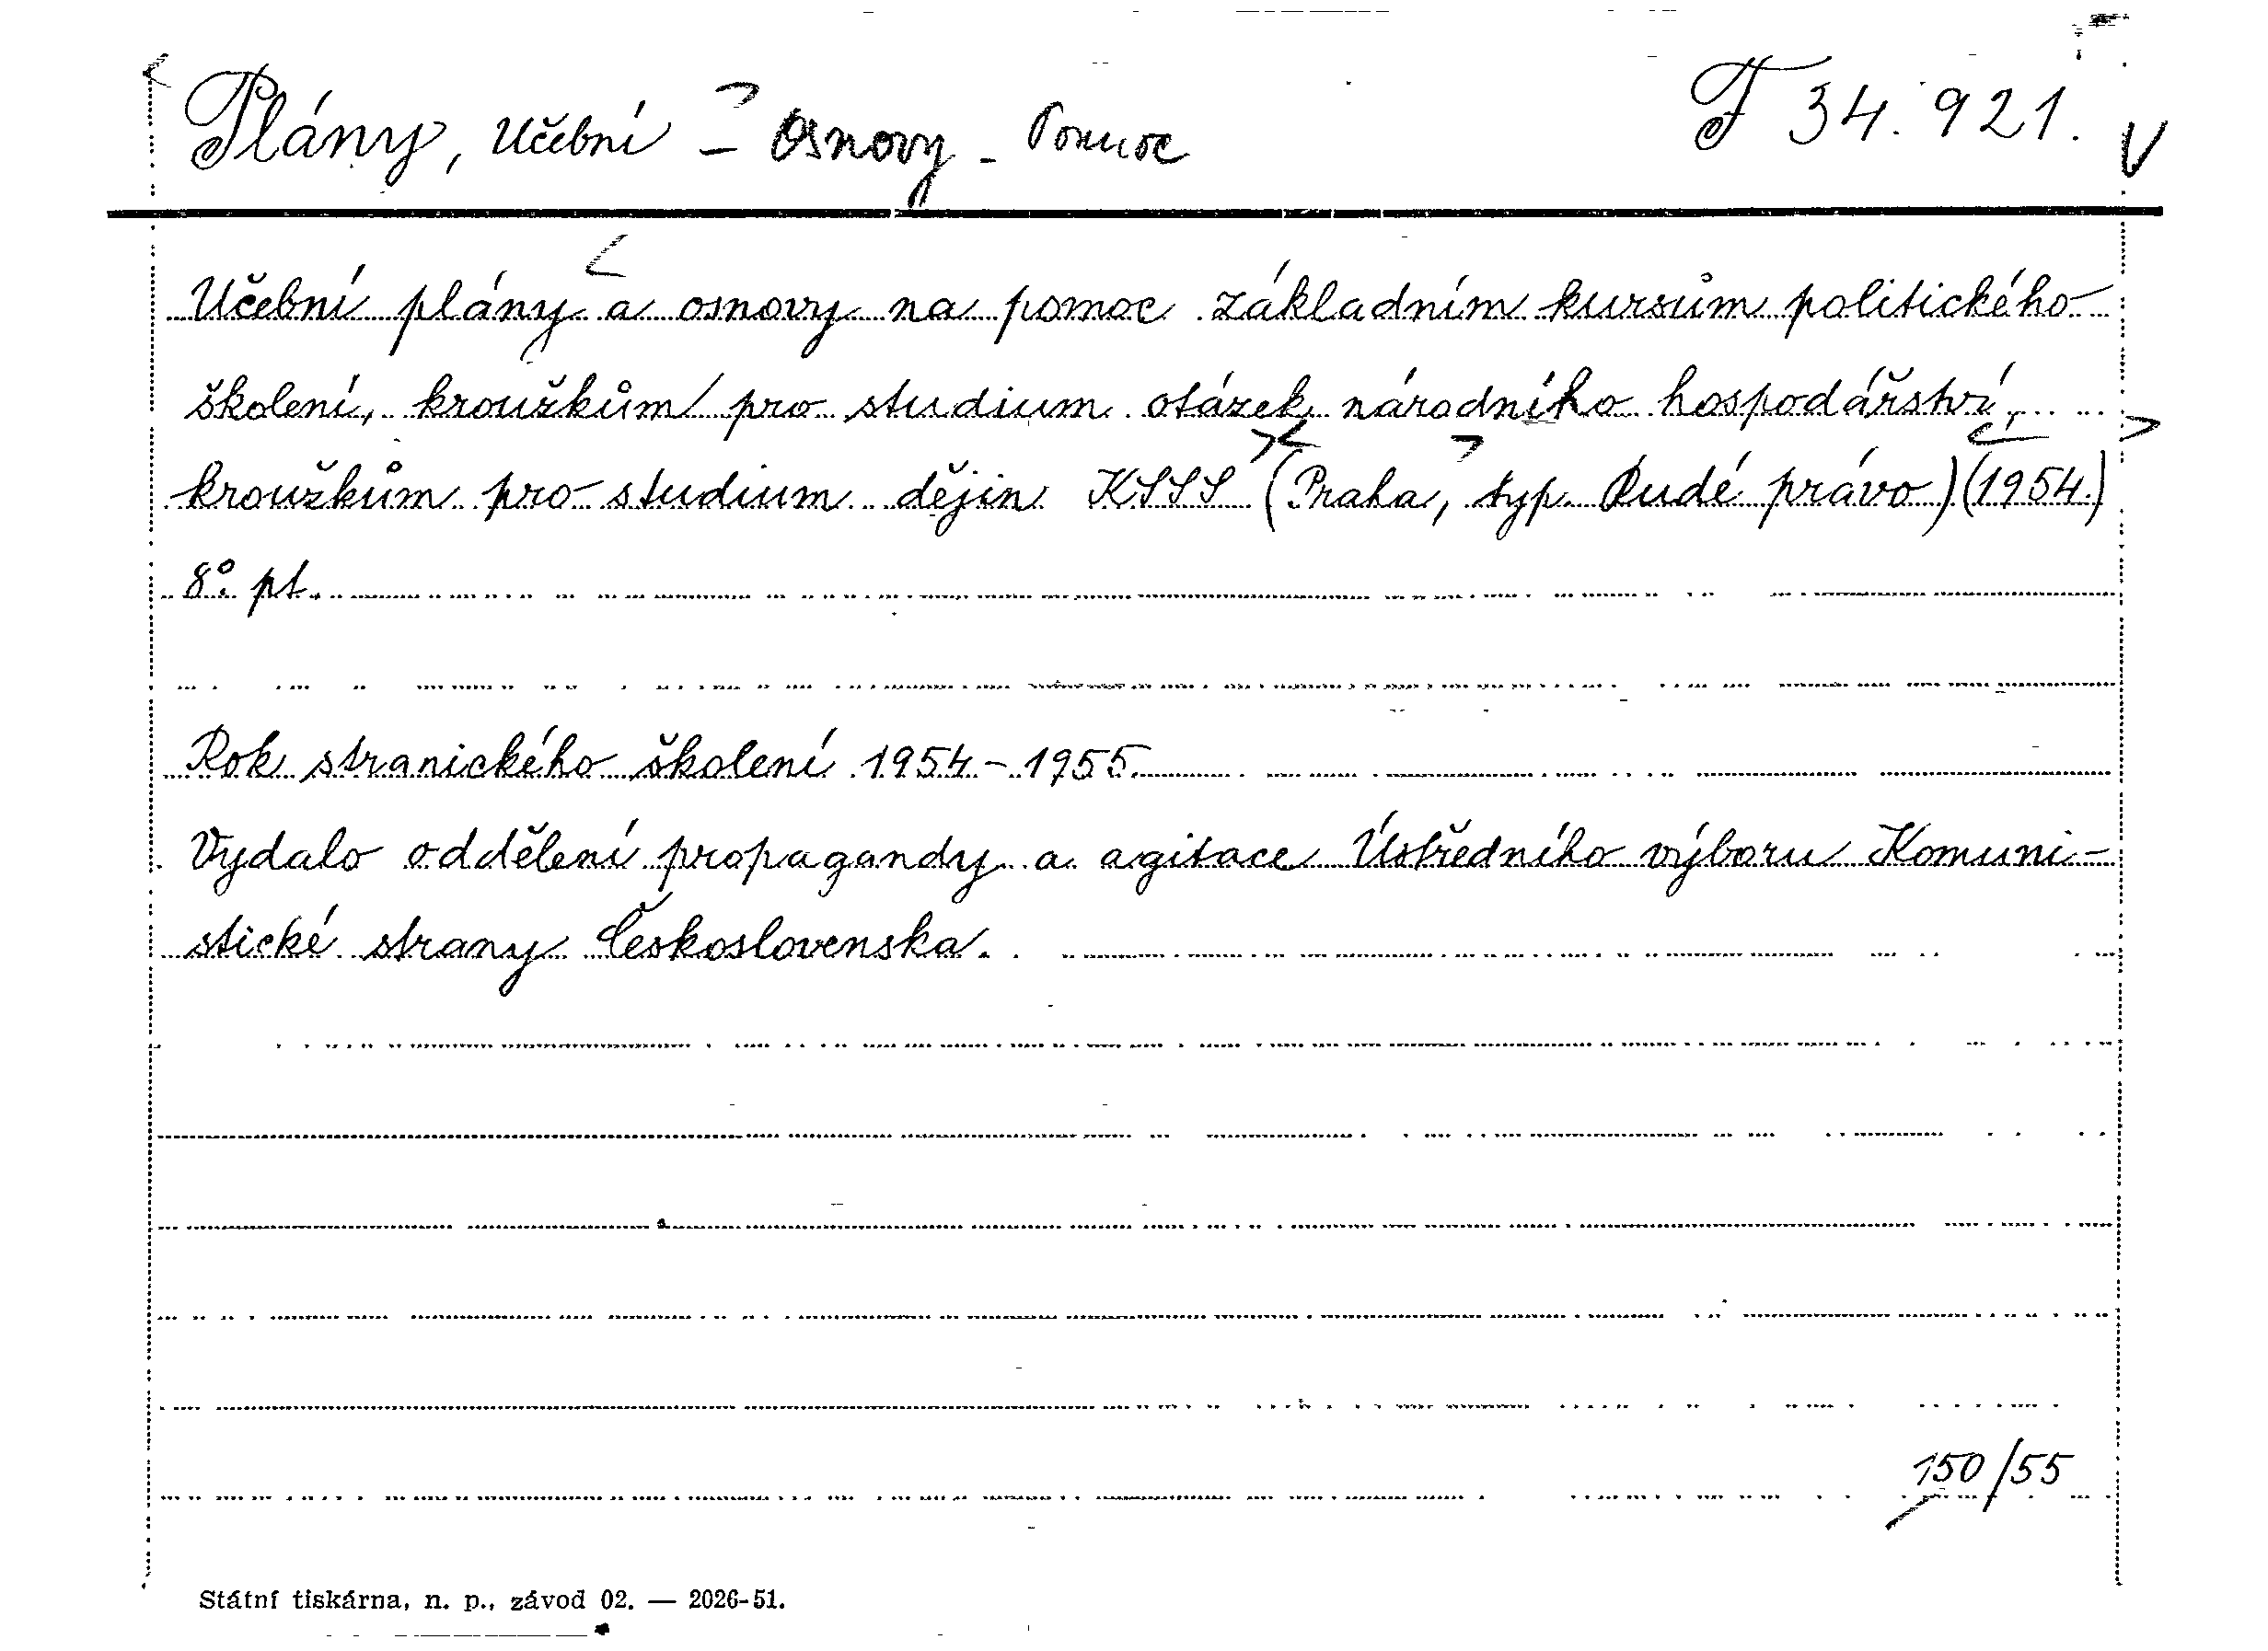 Plány, Učební - Osnovy - Pomoc
F 34.921.
Učební plány a osnovy na pomoc základním kursům politického
školení, kroužkům pro studium otázek národního hospodářství,
kroužkům pro studium dějin KSSS (Praha, typ. Rudé právo) (1954.)
8°. pt.
Rok stranického školení 1954-1955.
Vydalo oddělení propagandy a agitace Ústředního výboru Komuni-
stické strany Československa.
150/55
Státní tiskárna, n. p., závod 02. — 2026-51.